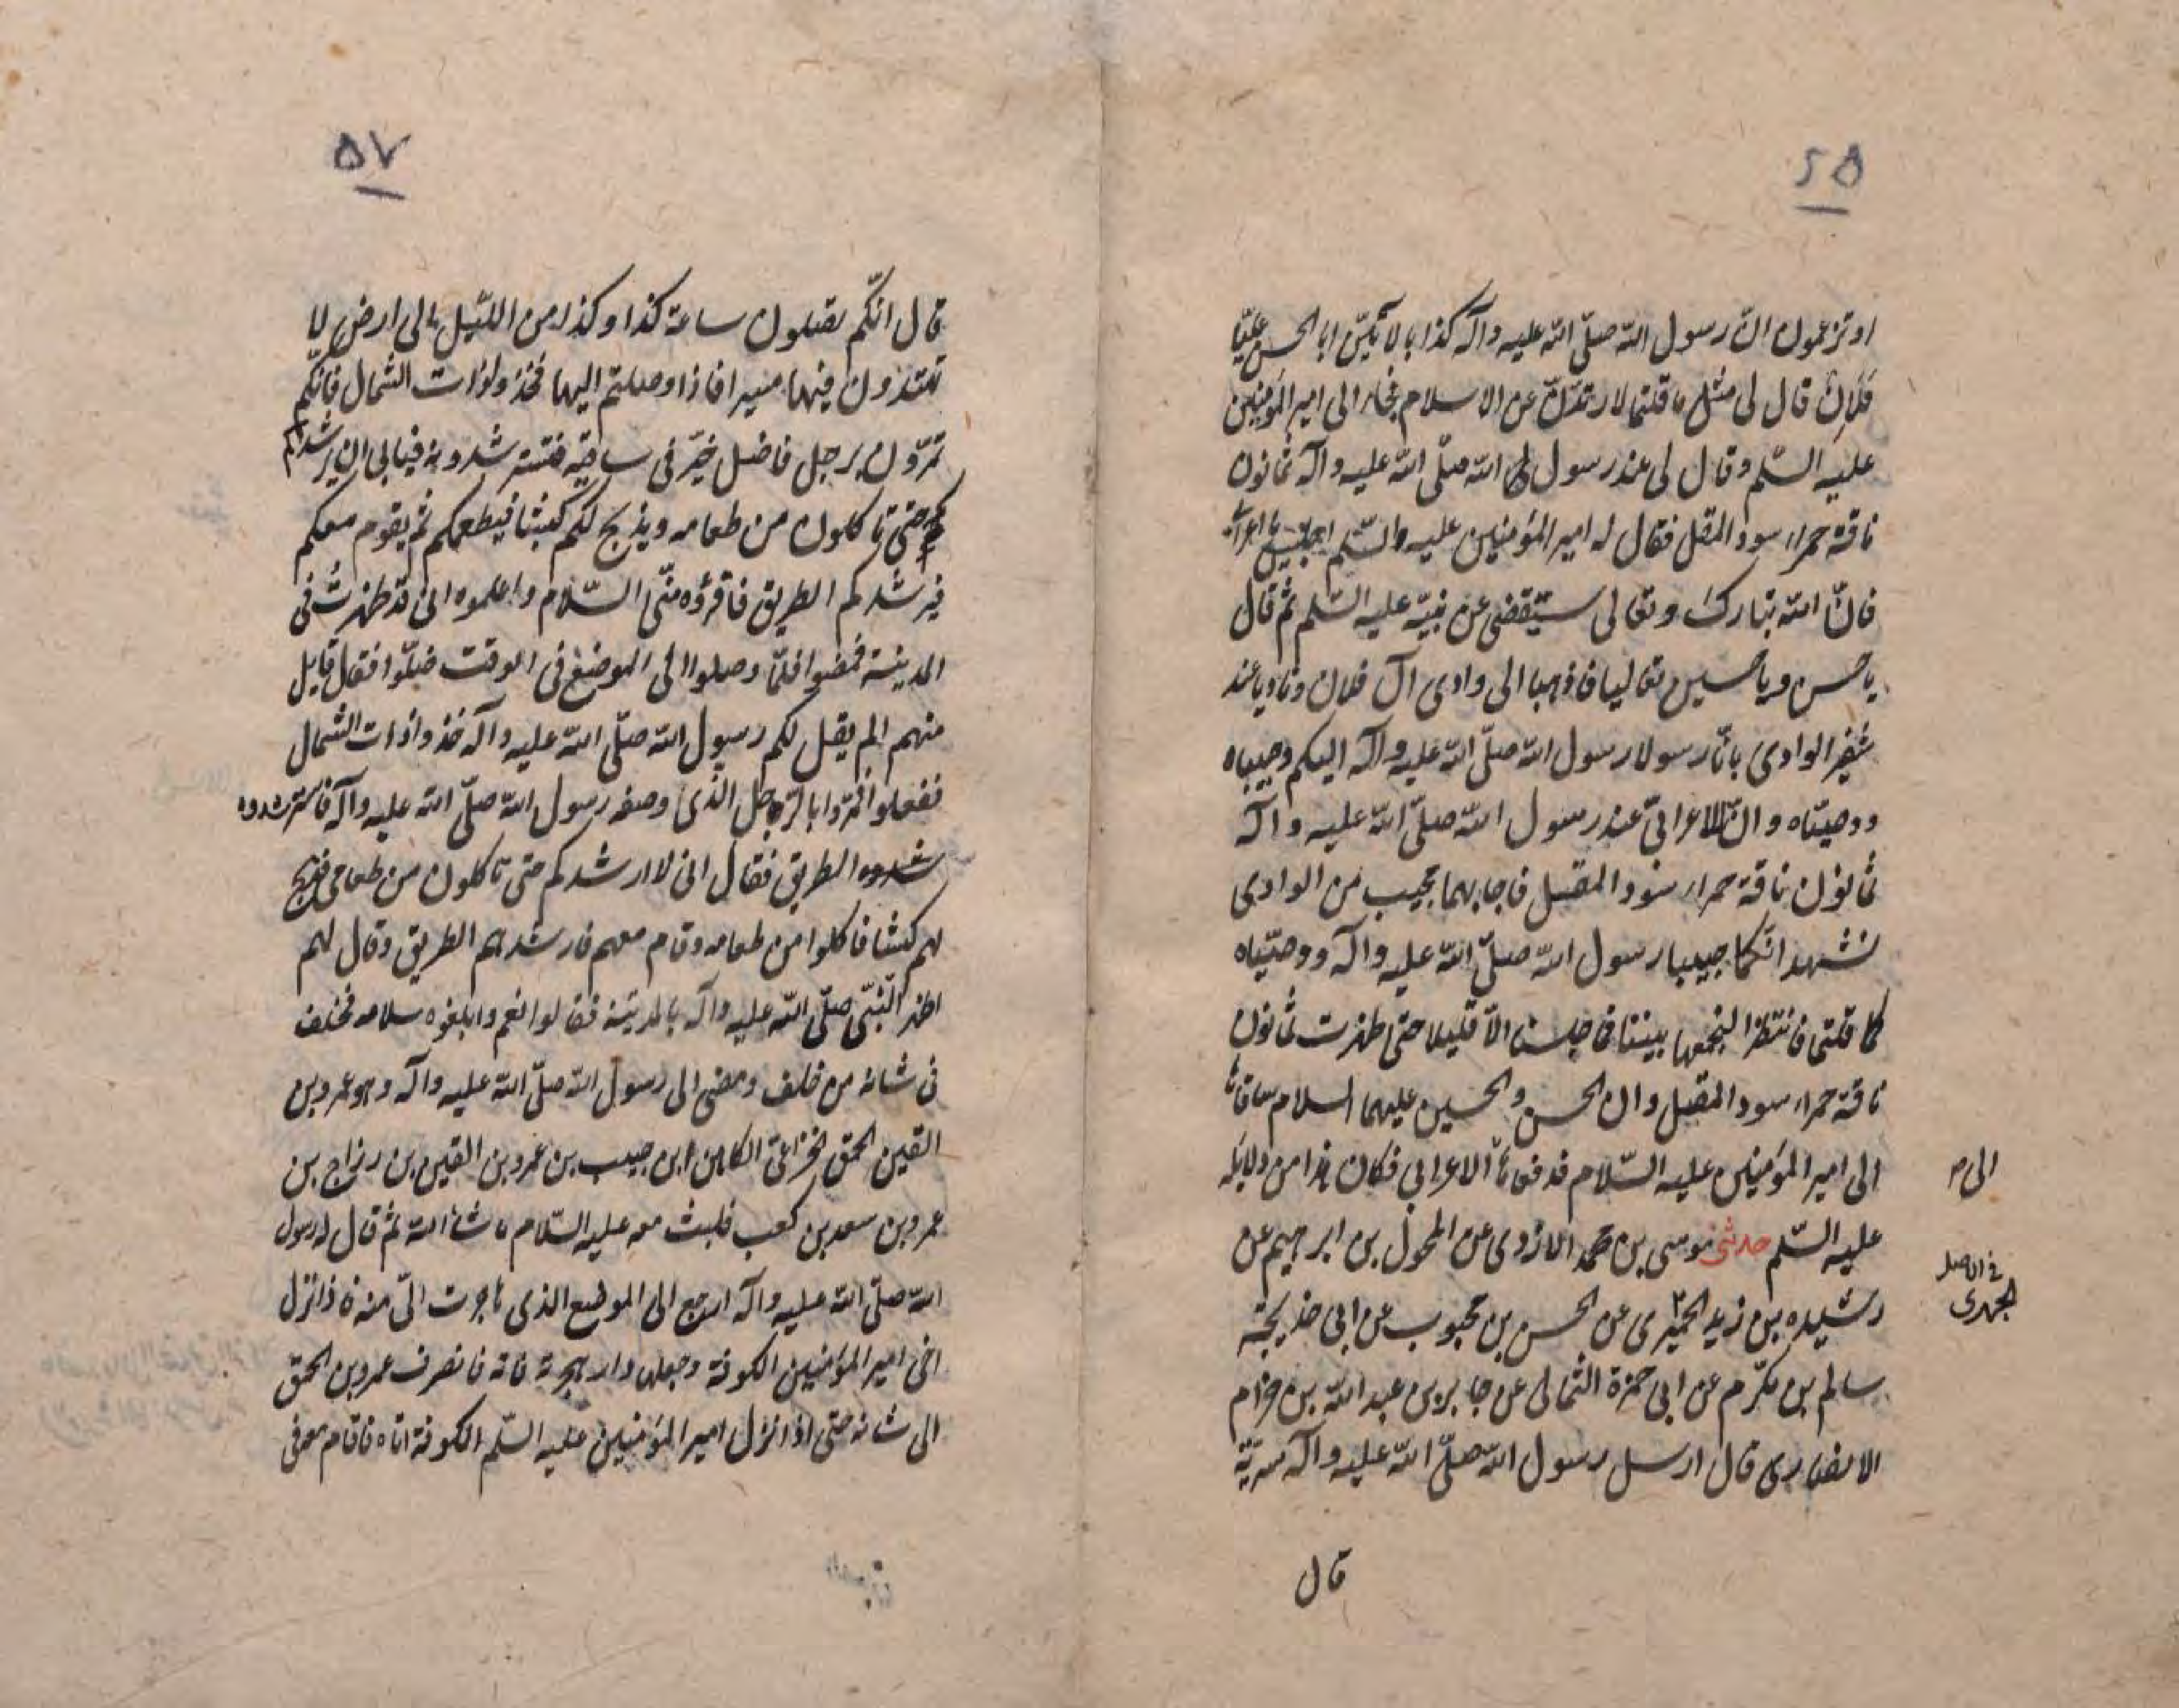 ۵۶
او تزعمون انّ رسول الله صلّى الله عليه وآله كذابا لآتينّ ابا الحسن عليّا
فلان قال لى مثل ما قلتما لارتدّنّ عن الاسلام فجاء الى امير المؤمنين
عليه السّلم وقال لى عند رسول الله صلّى الله عليه وآله ثمانون
ناقة حمراء سود المقل فقال له امير المؤمنين عليه السّلم اجلس يا اعرابى
فانّ الله تبارك وتعالى سيقضى عن نبيّه عليه السّلم ثم قال
يا حسن ويا حسين تعاليا فاذهبا الى وادى آل فلان وناديا عند
شفير الوادى بانّا رسولا رسول الله صلّى الله عليه وآله اليكم وحبيباه
ووصيّاه وانّ للاعرابىّ عند رسول الله صلّى الله عليه وآله
ثمانون ناقة حمراء سود المقل فاجابهما مجيب من الوادى
نشهد انّكما حبيبا رسول الله صلّى الله عليه وآله ووصيّاه
كما قلتما فانتظرا لنجمعها بيننا فما جلسنا الّا قليلا حتى ظهرت ثمانون
ناقة حمراء سود المقل وان الحسن والحسين عليهما السلام ساقاها
الى امير المؤمنين عليه السّلام فدفعاها الى الاعرابى فكان هذا من دلايله
الى م
عليه السّلم حدثنى موسى بن محمد الازدى عن المخول بن ابرهيم عن
رشيده بن زيد الحميرى عن الحسن بن محبوب عن ابى خديجة
فى الاصل
الجهرى
سالم بن مكرّم عن ابى حمزة الثمالى عن جابر بن عبد الله بن حزام
الانصارى قال ارسل رسول الله صلّى الله عليه وآله سريّة
قال
۵۷
قال انّكم تصلون ساعة كذا وكذا من اللّيل الى ارض لا
تهتدون فيها مسيرا فاذا وصلتم اليها فخذوا ذات الشمال فانّكم
تمرّون برجل فاضل خيّر فى ساحته فتسترشدونه فيابى ان يرشدكم
حتى تاكلون من طعامه ويذبح لكم كبشا فيطعمكم ثم يقوم معكم
فيرشدكم الطريق فاقرؤه منّى السّلام واعلموه انى قد ظهرت فى
المدينة فمضوا فلمّا وصلوا الى الموضع فى الوقت ضلّوا فقال قايل
منهم الم يقل لكم رسول الله صلّى الله عليه وآله خذوا ذات الشمال
ففعلوا فمرّوا بالرّجل الذى وصفه رسول الله صلّى الله عليه وآله فاسترشدوه
شدوه الطريق فقال انى لا ارشدكم حتى تاكلون من طعامى فذبح
لهم كبشا فاكلوا من طعامه وقام معهم فارشدهم الطريق وقال لهم
اظهر النّبىّ صلّى الله عليه وآله بالمدينة فقالوا نعم وابلغوه سلامه فخلف
فى شانه من خلف ومضى الى رسول الله صلّى الله عليه وآله وهو عمرو بن
القين الحمق الخزاعىّ الكاهن ابن حبيب بن عمرو بن القين بن رزاح بن
عمرو بن سعد بن كعب فلبث معه عليه السّلام ما شاء الله ثم قال له رسول
الله صلّى الله عليه وآله ارجع الى الموضع الذى هاجرت الىّ منه فاذا نزل
اخى امير المؤمنين الكوفة وجعلها دار هجرته فاته فانصرف عمرو بن الحمق
الى شانه حتى اذا نزل امير المؤمنين عليه السّلم الكوفة اتاه فاقام معه فى